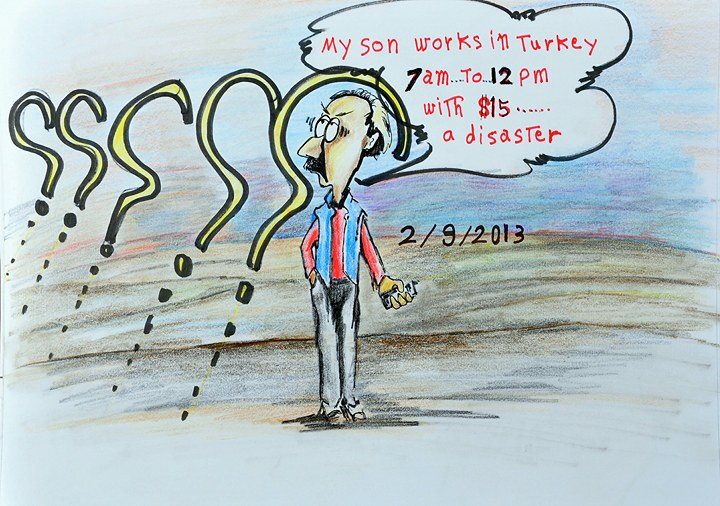 My son works in Turkey
7am...To..12 pm
with $15......
a disaster
2/9/2013